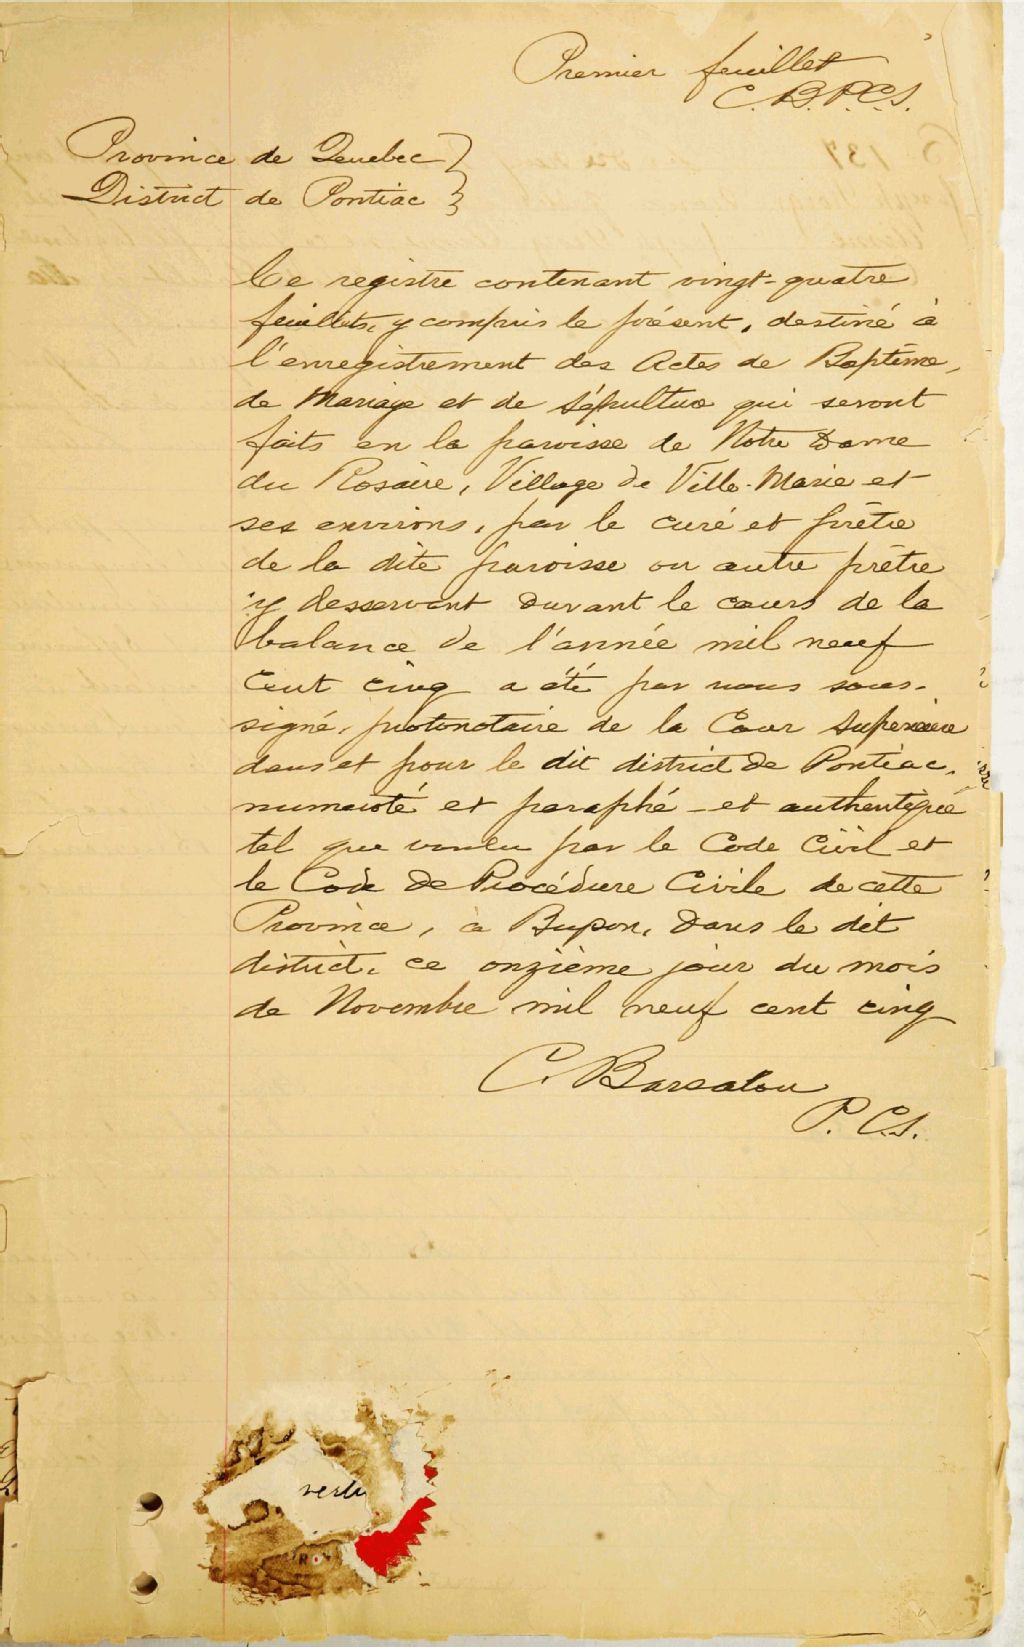 Premier feuillet
C. B. P.C.S.
Province de Quebec
District de Pontiac
Ce registre contenant vingt-quatre
feuillets, y compris le présent, destiné à
l'enregistrement des Actes de Baptême,
de Mariage et de Sépulture qui seront
faits en la paroisse de Notre Dame
du Rosaire, Village de Ville-Marie et
ses environs, par le curé et prêtre
de la dite paroisse ou autre prêtre
y desservant durant le cours de la
balance de l'année mil neuf
cent cinq a été par nous sous-
signé, protonotaire de la Cour Superieure
dans et pour le dit district de Pontiac,
numeroté et paraphé - et authentiqué
tel que voulu par le Code Civil et
le Code de Procédure Civile de cette
Province, à Bryson, dans le dit
district, ce onzième jour du mois
de Novembre mil neuf cent cinq
C. Barsalou
P. C.S.